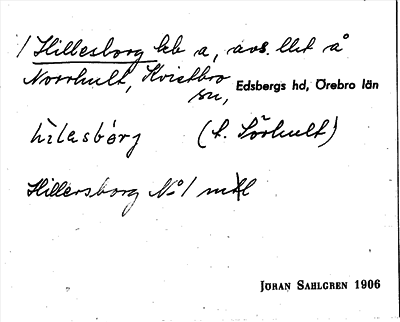 1 Hillesborg lrh a, avs. lht å
Norrhult, Kvistbro
sn, Edsbergs hd, Örebro län
hìlasbórg (f. Sörhult)
Hillersborg No 1 mtl
JÖRAN SAHLGREN 1906